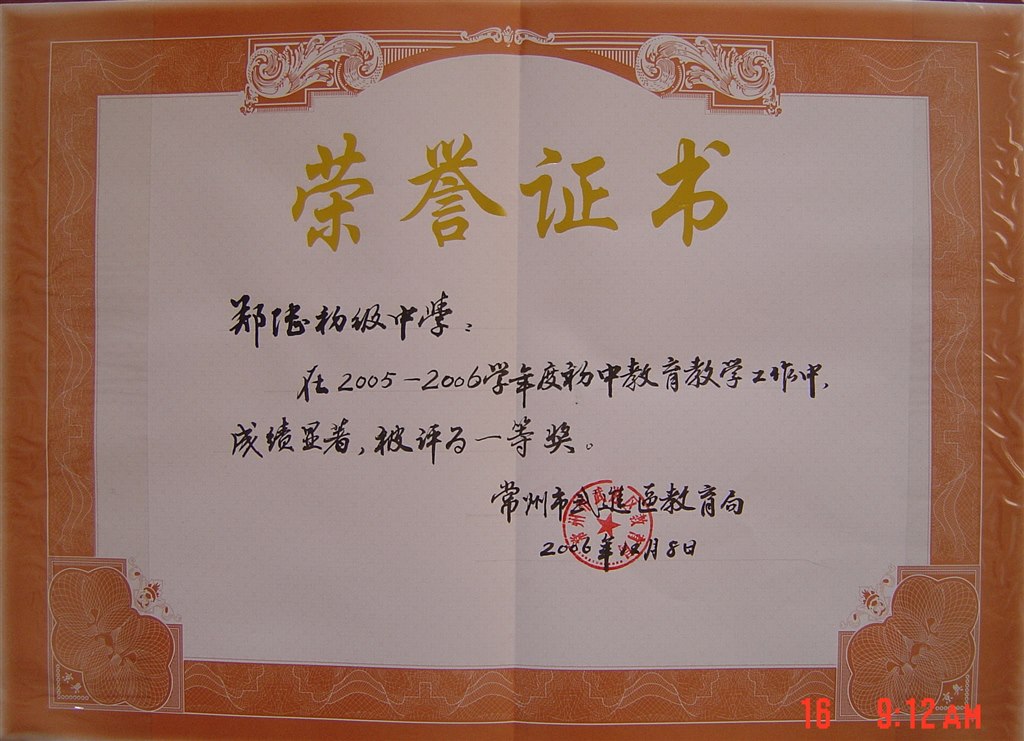 荣誉证书
郑陆初级中学：
在2005-2006学年度初中教育教学工作中，
成绩显著，被评为一等奖。
常州市武進区教育局
2006年12月8日
16 9:12AM